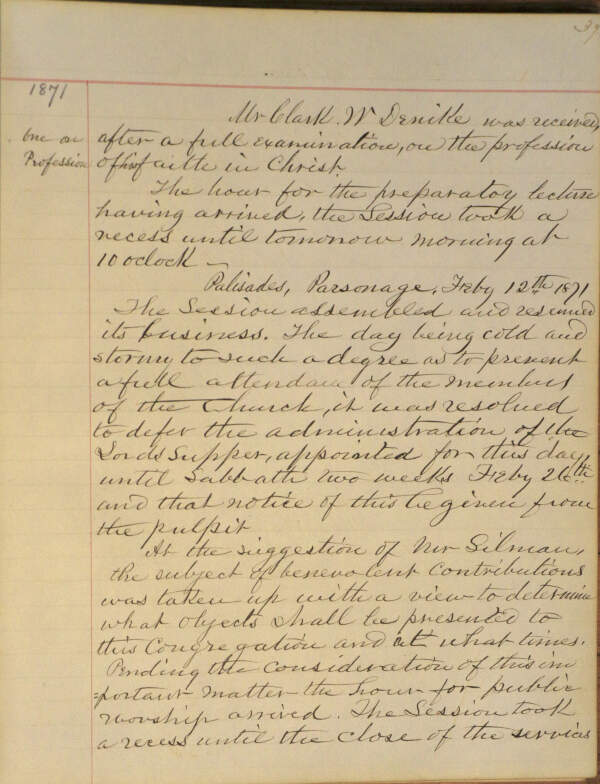 39
1871
Mr Clark. W Denike was received,
one on
Profession
after a full examination, on the profession
of his faith in Christ
The hour for the preparatoy lecture
having arrived, the Session took a
recess until tomorrow morning at
10 oclock —
Palisades, Parsonage, Feby 12th 1871
The Session assembled and resumed
its business. The day being cold and
stormy to such a degree as to prevent
a full attendance of the members
of the Church, it was resolved
to defer the administration of the
Lords Supper, appointed for this day
until Sabbath two weeks Feby 26th
and that notice of this be given from
the pulpit
At the suggestion of Mr Gilman,
the subject of benevolent contributions
was taken up with a view to determine
what objects shall be presented to
this Congregation and at what times.
Pending the consideration of this im
=portant matter the hour for public
worship arrived. The Session took
a recess until the close of the services